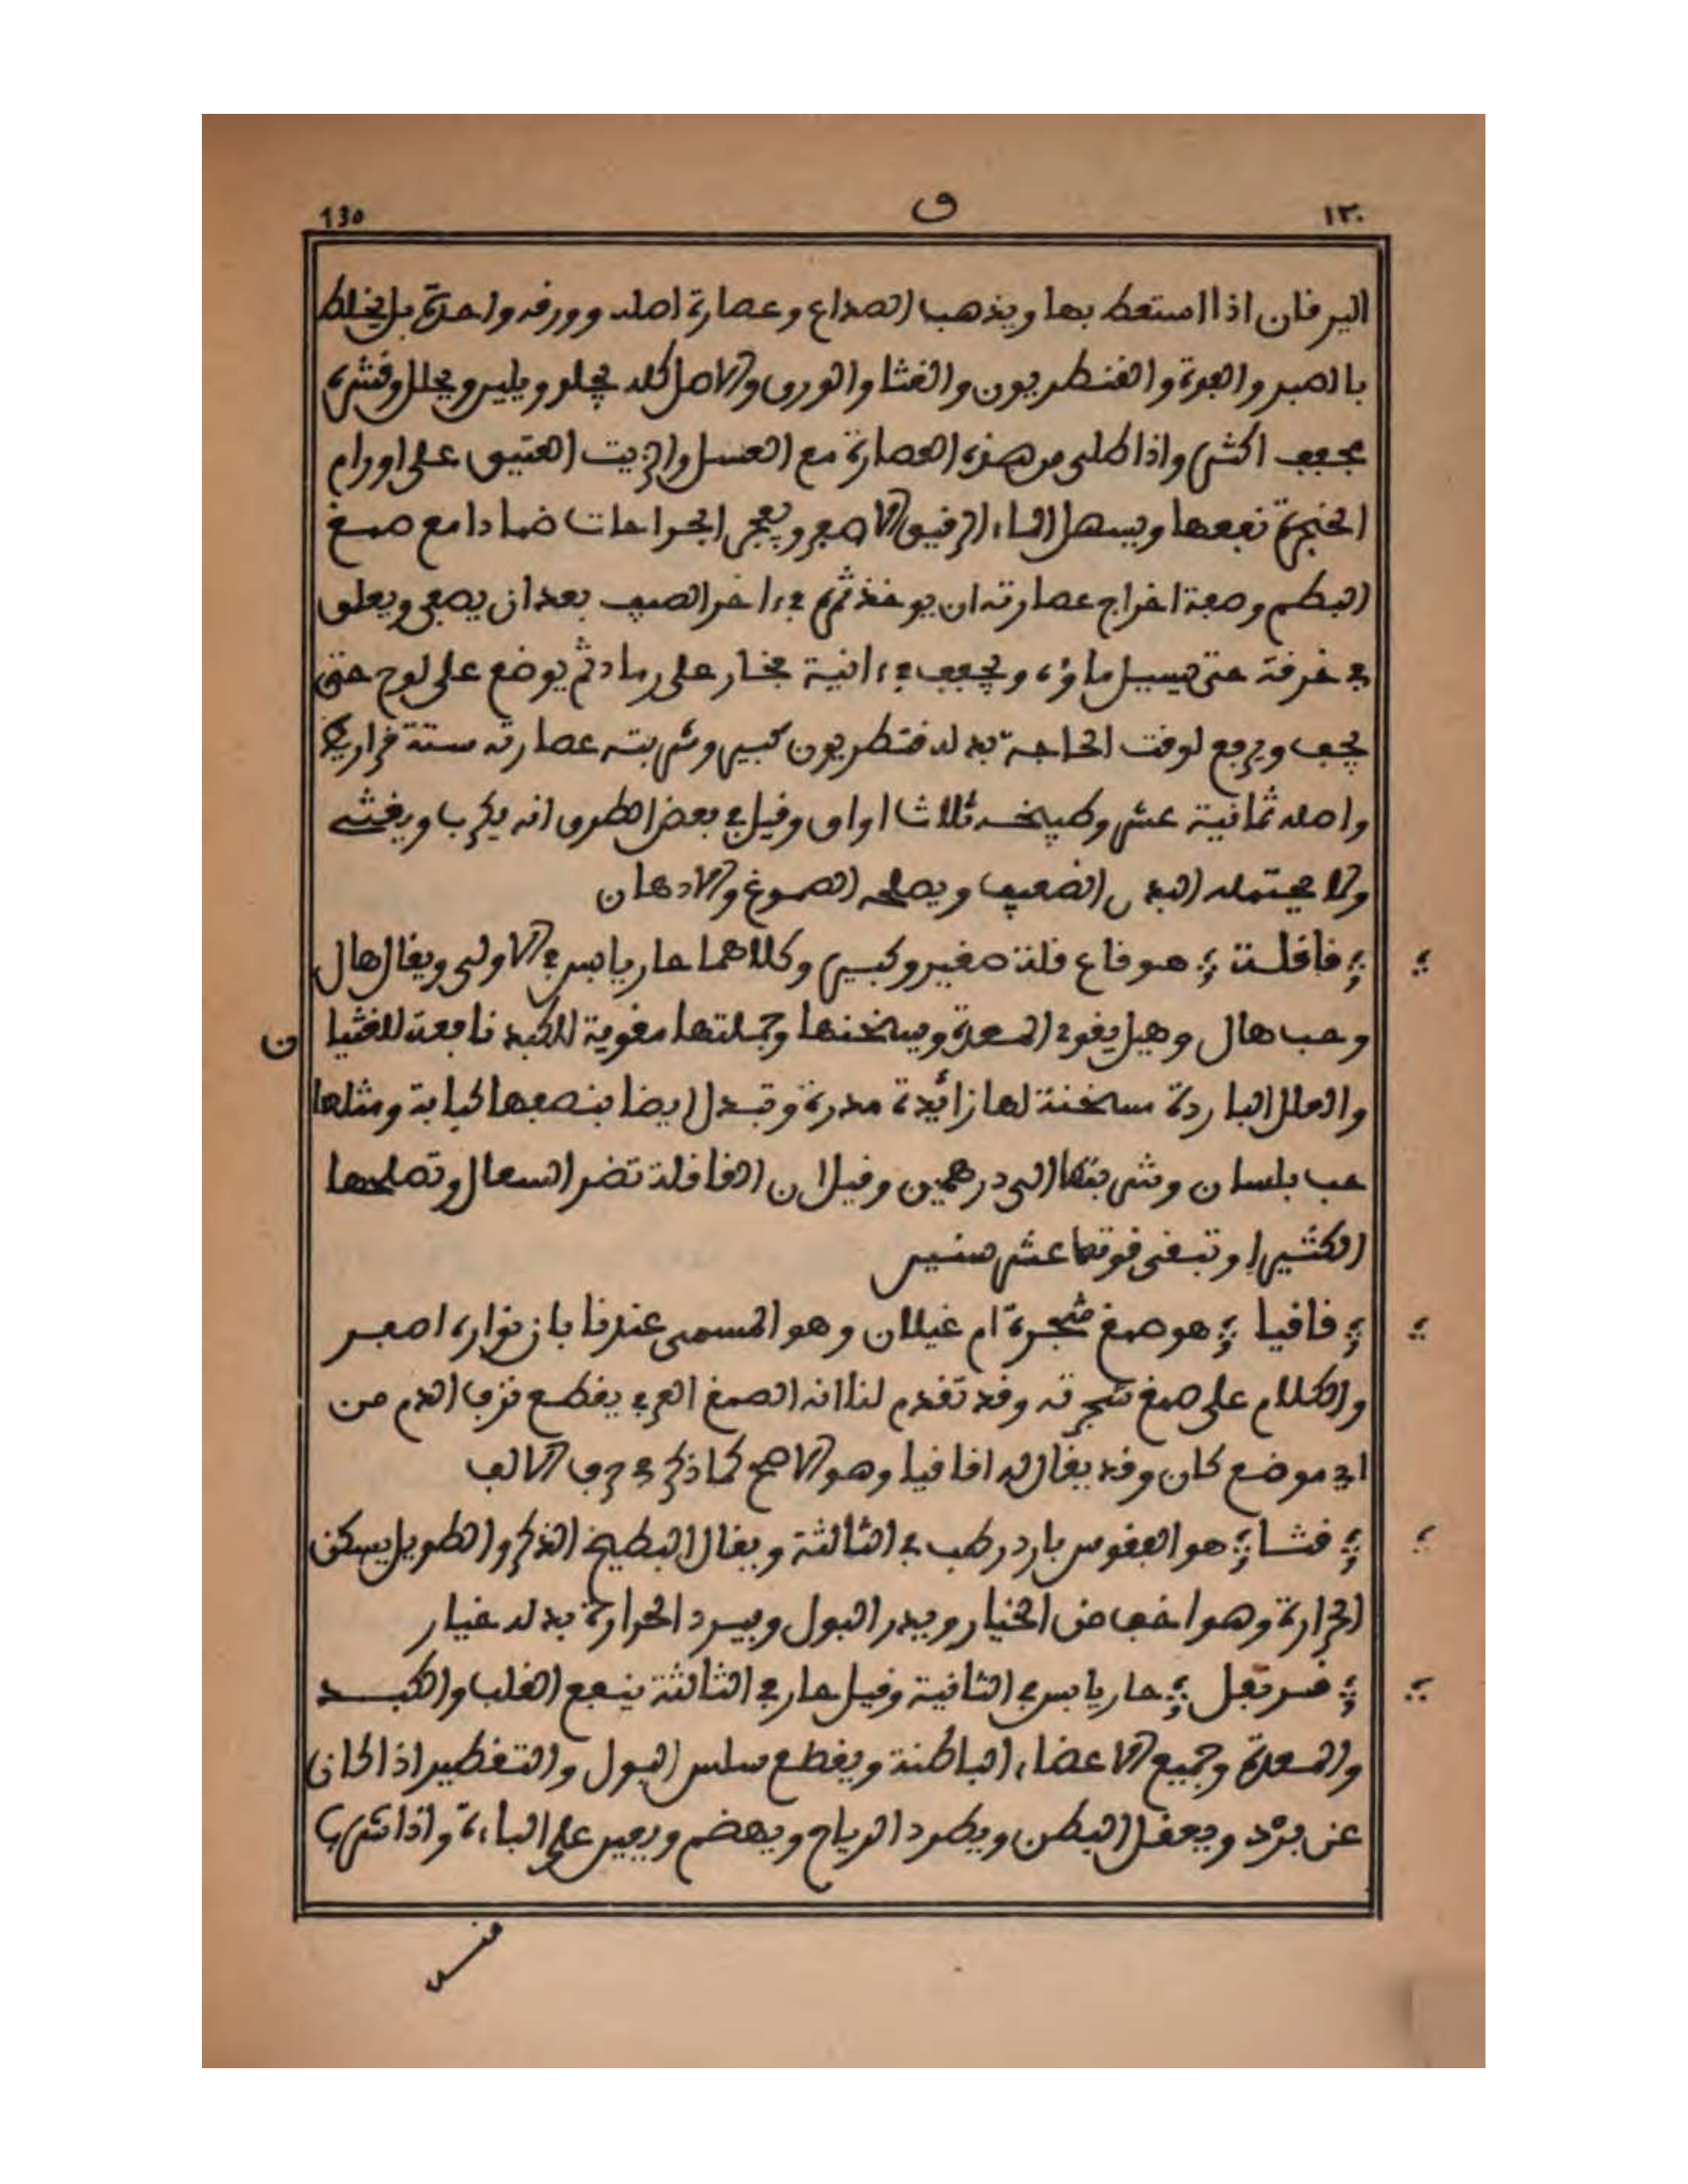 130 ق ١٣٠
اليرقان اذا استعط بها ويذهب الصداع وعصارة اصله وورقه واحدة بل يخلط
بالصبر والفوة والقنطريون والقثا والورق والاصل كله يجلو ويلين ويحلل وقشره
يجفف اكثر واذا طلى من هذه العصارة مع العسل والزيت العتيق على اورام
الحنجرة نفعها ويسهل الماء الرقيق الاصفر ويفجر الجراحات ضمادا مع صمغ
البطم وصفة اخراج عصارته ان يوخذ ثمره في ءاخر الصيف بعد ان يصفى ويعلق
في خرقة حتى يسيل ماؤه ويجفف في ءانية فخار على رماد ثم يوضع على لوح حتى
يجف ويرفع لوقت الحاجة بدله قنطريون كبير وشربته عصارته ستة قراريط
واصله ثمانية عشر وطبيخه ثلاث اواق وقيل في بعض الطرق انه يكرب ويغشي
ولا يحتمله البدن الضعيف ويصلحه الصموغ والادهان
قاقلة هو قاع قلة صغير وكبير وكلاهما حار يابس في الاولى ويقال هال
وحب هال وهيل يقوي المعدة ويسخنها وجملتها مقوية للكبد نافعة للغثيان
والعلل الباردة مسخنة لها زائدة مدرة وتبدل ايضا بنصفها كبابة ومثلها
حب بلسان وشربتها الى درهمين وقيل ان القاقلة تضر السعال وتصلحها
الكثيرا وتبقى قوتها عشر سنين
قاقيا هو صمغ شجرة ام غيلان وهو المسمى عندنا بان نواره اصفر
والكلام على صمغ شجرته وقد تقدم لنا انه الصمغ العربي يقطع نزف الدم من
اي موضع كان وقد يقال له اقاقيا وهو الاصح كما ذكر في حرف الالف
قثا هو الفقوس بارد رطب في الثالثة ويقال البطيخ الذكر والطويل يسكن
الحرارة وهو اخف من الخيار ويدر البول ويبرد الحرارة بدله خيار
قرنفل حار يابس في الثانية وقيل حار في الثالثة ينفع القلب والكبد
والمعدة وجميع الاعضاء الباطنة ويقطع سلس البول والتقطير اذا كان
عن برد ويعقل البطن ويطرد الرياح ويهضم ويعين على الباءة واذا شرب